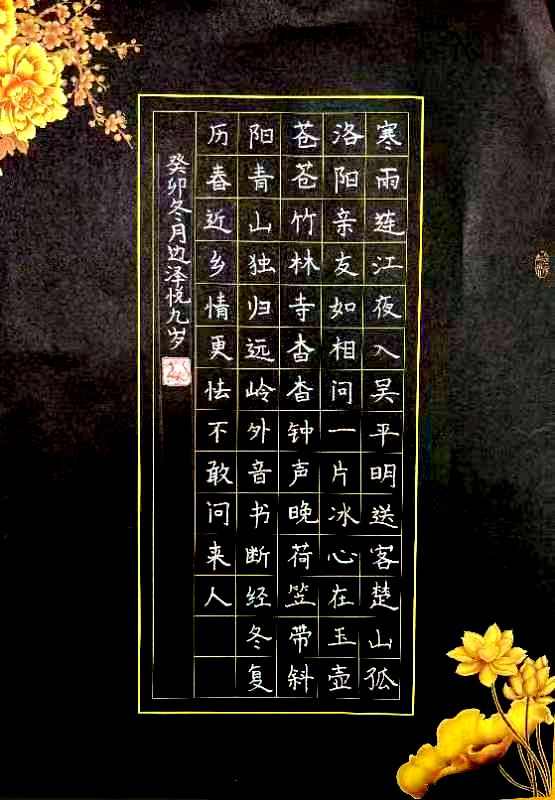 寒雨连江夜入吴平明送客楚山孤
洛阳亲友如相问一片冰心在玉壶
苍苍竹林寺杳杳钟声晚荷笠带斜
阳青山独归远岭外音书断经冬复
历春近乡情更怯不敢问来人
癸卯冬月边泽悦九岁